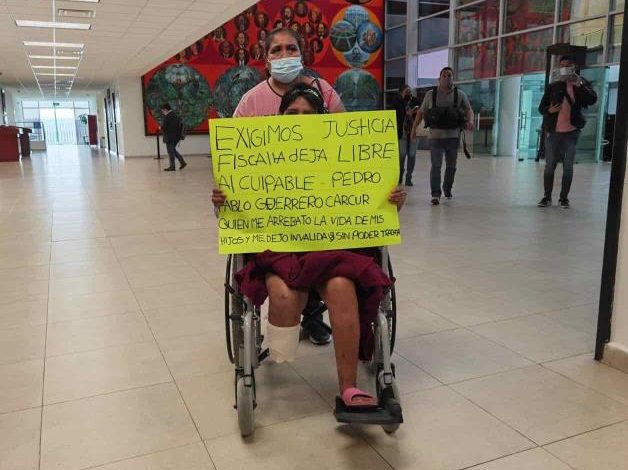 EXIGIMOS JUSHCIA
FISCALIA DEJA LIBRE
AL CULPABLE - PEDRO
PABLO GUERRERO CARCUR
QUIEN ME ARREBATO LA VIDA DE MIS
HIJOS Y ME DEJO INVALIDA Y SIN PODER